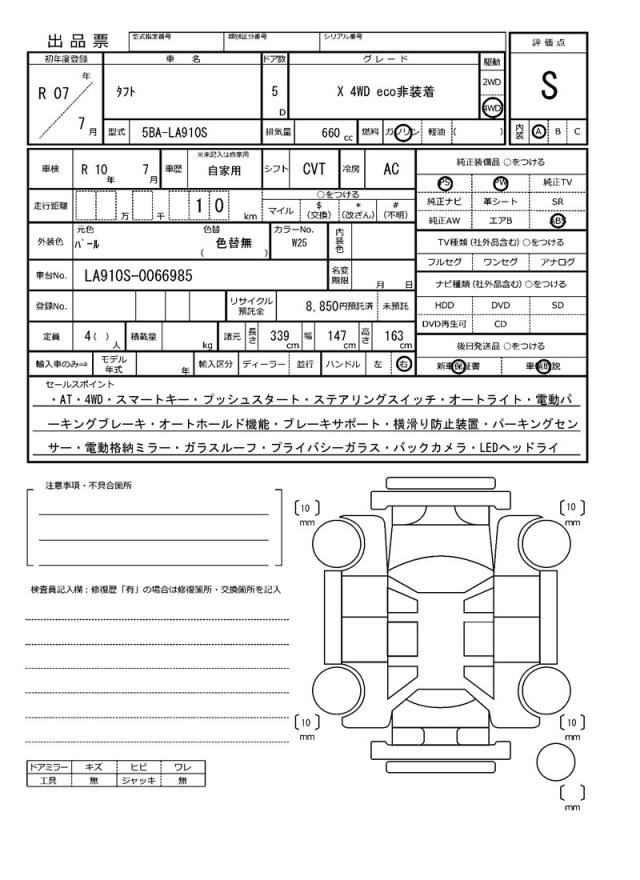 出品票
型式指定番号 類別区分番号 シリアル番号
初年度登録 車 名 ドア数 グレード 駆動 評価点
R 07 年 7 月
タフト 5 D X 4WD eco非装着 2WD 4WD S
型式 5BA-LA910S 排気量 660 cc 燃料 ガソリン 軽油 ( ) 内装 A B C
車検 R 10 年 7 月 車歴 ※未記入は自家用 自家用 シフト CVT 冷房 AC
純正装備品 ○をつける
PS PW 純正TV
純正ナビ 革シート SR
純正AW エアB ABS
走行距離 万 千 1 0 km ○をつける
マイル $ (交換) * (改ざん) # (不明)
外装色 元色 パール 色替 色替無 ( ) カラーNo. W25 内装色
TV種類 (社外品含む) ○をつける
フルセグ ワンセグ アナログ
車台No. LA910S-0066985 名変期限 月 日
ナビ種類 (社外品含む) ○をつける
HDD DVD SD
DVD再生可 CD
登録No. リサイクル預託金 8,850円預託済 未預託
定員 4( ) 人 積載量 kg 諸元 長さ 339 cm 幅 147 cm 高さ 163 cm
後日発送品 ○をつける
新車保証書 車輌取説
輸入車のみ⇒ モデル年式 年 輸入区分 ディーラー 並行 ハンドル 左 右
セールスポイント
・AT・4WD・スマートキー・プッシュスタート・ステアリングスイッチ・オートライト・電動パ
ーキングブレーキ・オートホールド機能・ブレーキサポート・横滑り防止装置・パーキングセン
サー・電動格納ミラー・ガラスルーフ・プライバシーガラス・バックカメラ・LEDヘッドライ
注意事項・不具合箇所
[10] mm [10] mm
検査員記入欄：修復歴「有」の場合は修復箇所・交換箇所を記入
[10] mm [10] mm
ドアミラー キズ ヒビ ワレ
工具 無 ジャッキ 無
[ ] mm